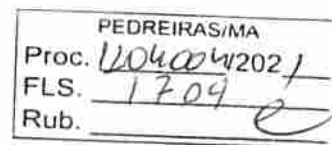 PEDREIRAS/MA
Proc. 1204004/2021
FLS. 1704
Rub.